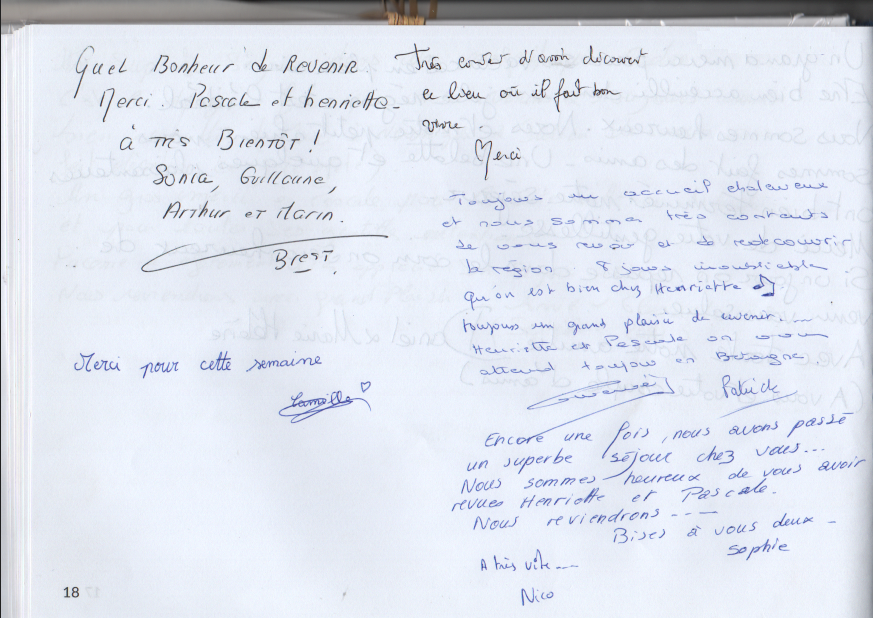 Quel Bonheur de Revenir.
Merci. Pascale et henriette.
à très Bientôt !
Sonia, Guillaume,
Arthur et Marin.
Brest.
Merci pour cette semaine
Camille
Très content d'avoir découvert
ce lieu où il fait bon
vivre.
Merci
Toujours un accueil chaleureux
et nous sommes très contents
de vous revoir et de redécouvrir
la région 8 jours inoubliable
qu'on est bien chez Henriette
toujours un grand plaisir de revenir.....
Henriette et Pascale on vous
attend toujours en Bretagne
Patrick
Encore une fois, nous avons passé
un superbe séjour chez vous...
Nous sommes heureux de vous avoir
revues Henriette et Pascale.
Nous reviendrons ----
Bises à vous deux -
Sophie
A très vite....
Nico
18